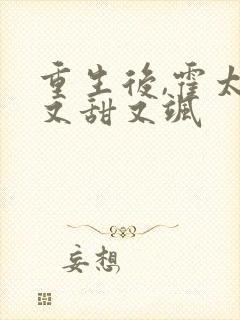 重生後,霍太
又甜又颯
妄想